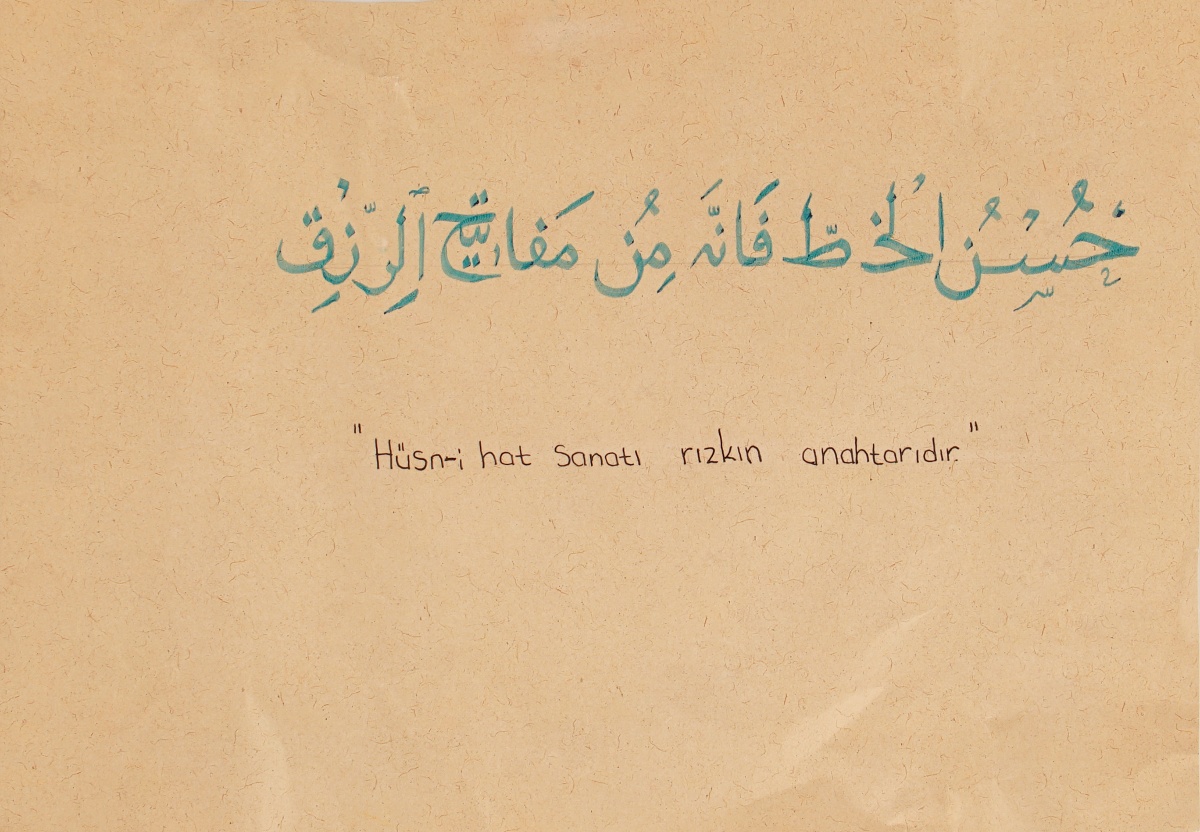 حُسْنُ الْخَطِّ فَانَّهُ مِنْ مَفَاتِيحِ الرِّزْقِ
"Hüsn-i hat Sanatı rızkın anahtarıdır."